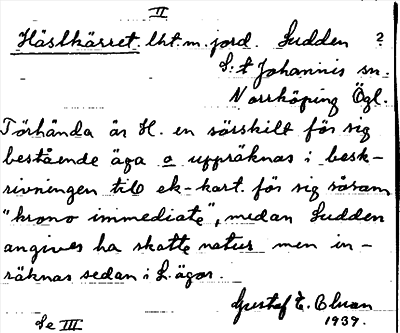 II
Hästkärret. lht. m. jord. Sudden ?
S:t Johannis sn.
Norrköping Ögl.
Törhända är H. en särskilt för sig
bestående äga o uppräknas i besk-
rivningen till ek-kart. för sig såsom
"krono immediate", medan Sudden
angives ha skatte natur men in-
räknas sedan i L. ägor.
Gustaf E.
1939.
Se III